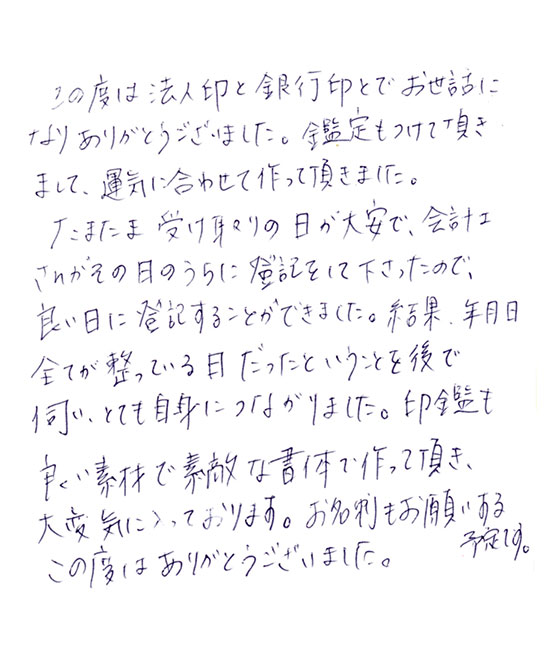 この度は法人印と銀行印とでお世話に
なりありがとうございました。鑑定もつけて頂き
まして、運気に合わせて作って頂きました。
たまたま受け取りの日が大安で、会計士
さんがその日のうちに登記をして下さったので、
良い日に登記することができました。結果、年月日
全てが整っている日だったということを後で
伺い、とても自身につながりました。印鑑も
良い素材で素敵な書体で作って頂き、
大変気に入っております。お名刺もお願いする
予定です。
この度はありがとうございました。